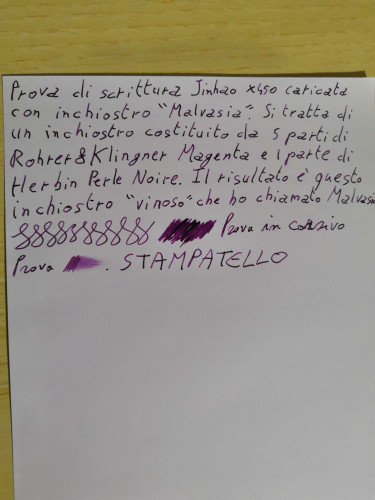 Prova di scrittura Jinhao x450 caricata
con inchiostro "Malvasia". Si tratta di
un inchiostro costituito da 5 parti di
Rohrer&Klingner Magenta e 1 parte di
Herbin Perle Noire. Il risultato è questo
inchiostro "vinoso" che ho chiamato Malvasia
Prova in corsivo
Prova . STAMPATELLO